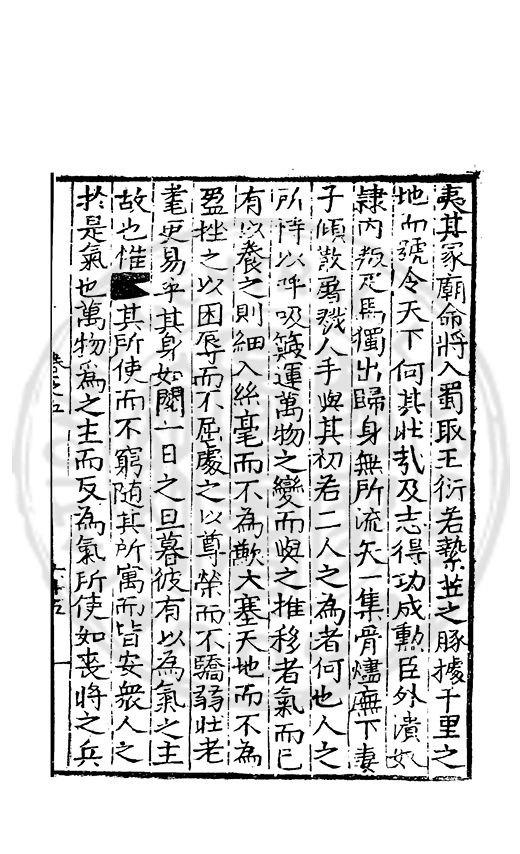 夷其家廟命將入蜀取王衍若縶苙之豚據千里之
地而號令天下何其壯㢤及志得功成勳臣外潰奴
隷内叛疋馬獨出歸身無所流矢一集骨燼廡下妻
子傾散屠戮人手與其初若二人之為者何也人之
所恃以呼吸簸運萬物之變而與之推移者氣而已
有以養之則細入絲毫而不為歉大塞天地而不為
盈挫之以困辱而不屈處之以尊榮而不驕弱壯老
耄更易乎其身如閱一日之旦暮彼有以為氣之主
故也惟其所使而不窮随其所寓而皆安衆人之
扵是氣也萬物爲之主而反為氣所使如喪將之兵
卷之五